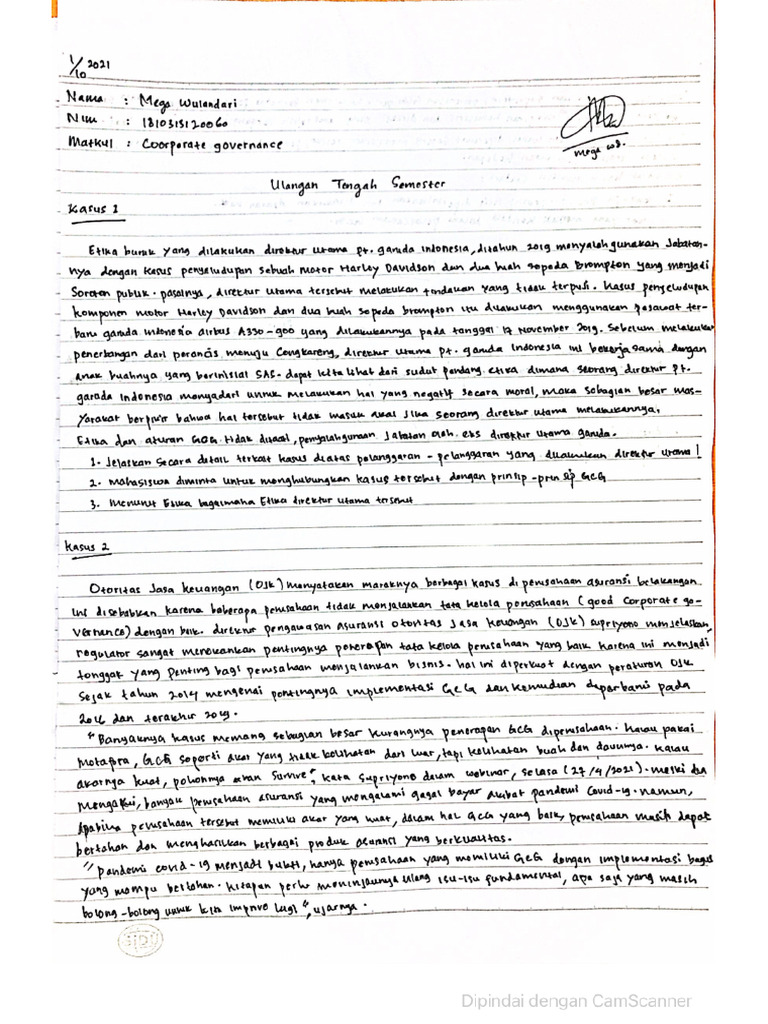 1/10 2021
Nama : Mega Wulandari
Nim : 1810313120060
Matkul : Coorporate governance
Mega wd.
Ulangan Tengah Semester
Kasus 1
Etika buruk yang dilakukan direktur utama pt. garuda indonesia, ditahun 2019 menyalah gunakan Jabatan-
nya dengan kasus penyeludupan sebuah motor Harley Davidson dan dua buah sepeda Brompton yang menjadi
Sorotan publik. pasalnya, direktur utama tersebut melakukan tindakan yang tidak terpuji. Kasus penyeludupan
komponen motor Harley Davidson dan dua buah sepeda brompton itu dilakukan menggunakan pesawat ter-
baru garuda Indonesia airbus A330-900 yang dilakukannya pada tanggal 17 November 2019. Sebelum melakukan
penerbangan dari perancis menuju Cengkareng, direktur utama pt. garuda Indonesia ini bekerja sama dengan
anak buahnya yang berinisial SAS. dapat kita lihat dari sudut pandang etika dimana seorang direktur pt.
garuda Indonesia menyadari untuk melakukan hal yang negatif secara moral, maka sebagian besar mas-
yarakat berpikir bahwa hal tersebut tidak masuk akal jika seorang direktur utama melakukannya.
Etika dan aturan GCG tidak ditaati, penyalahgunaan Jabatan oleh eks direktur utama garuda.
1. Jelaskan secara detail terkait kasus diatas pelanggaran - pelanggaran yang dilakukan direktur utama!
2. Mahasiswa diminta untuk menghubungkan kasus tersebut dengan prinsip-prinsip GCG
3. Menurut Etika bagaimana Etika direktur utama tersebut
Kasus 2
Otoritas Jasa Keuangan (OJK) menyatakan maraknya berbagai kasus di perusahaan asuransi belakangan
ini disebabkan karena beberapa perusahaan tidak menjalankan tata kelola perusahaan (good Corporate go-
vernance) dengan baik. direktur pengawasan asuransi otoritas Jasa Keuangan (OJK) supriyono menjelaskan,
regulator sangat menekankan pentingnya penerapan tata kelola perusahaan yang baik karena ini menjadi
tonggak yang penting bagi perusahaan menjalankan bisnis. hal ini diperkuat dengan peraturan OJK
Sejak tahun 2014 mengenai pentingnya implementasi GCG dan kemudian diperbarui pada
2016 dan terakhir 2019.
"Banyaknya kasus memang sebagian besar kurangnya penerapan GCG diperusahaan. Kalau pakai
metafora, GCG seperti akar yang tidak kelihatan dari luar, tapi kelihatan buah dan daunnya. Kalau
akarnya kuat, pohonnya akan survive", kata Supriyono dalam webinar, selasa (27/4/2021). meski dia
mengakui, banyak perusahaan asuransi yang mengalami gagal bayar akibat pandemi Covid-19. namun,
apabila perusahaan tersebut memiliki akar yang kuat, dalam hal GCG yang baik, perusahaan masih dapat
bertahan dan menghasilkan berbagai produk asuransi yang berkualitas.
"pandemi covid-19 menjadi bukti, hanya perusahaan yang memiliki GCG dengan implementasi bagus
yang mampu bertahan. kitapun perlu meninjaunya ulang isu-isu fundamental, apa saja yang masih
bolong-bolong untuk kita improve lagi", ujarnya.
Dipindai dengan CamScanner